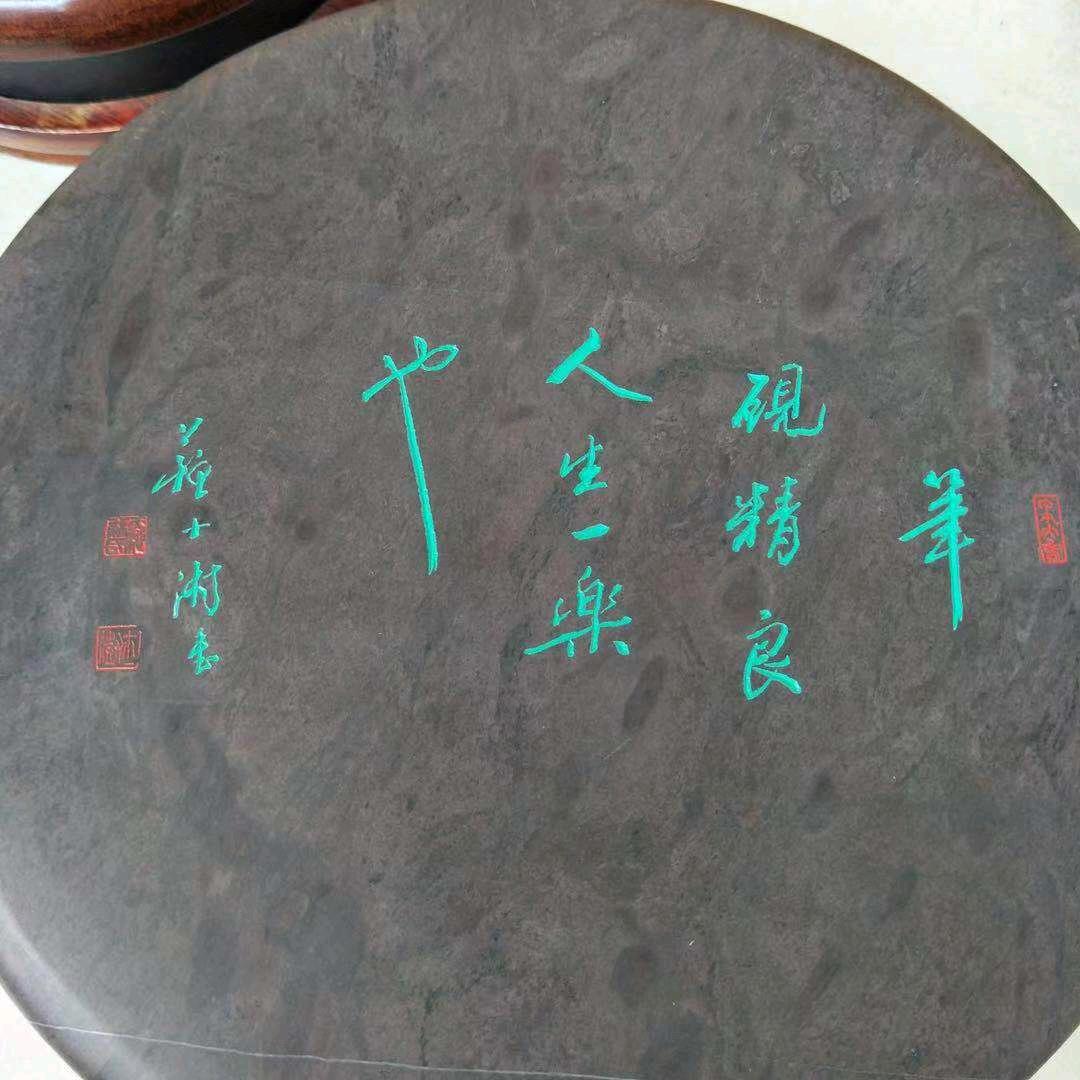 筆
硯精良
人生一樂
也
蘇士澍書